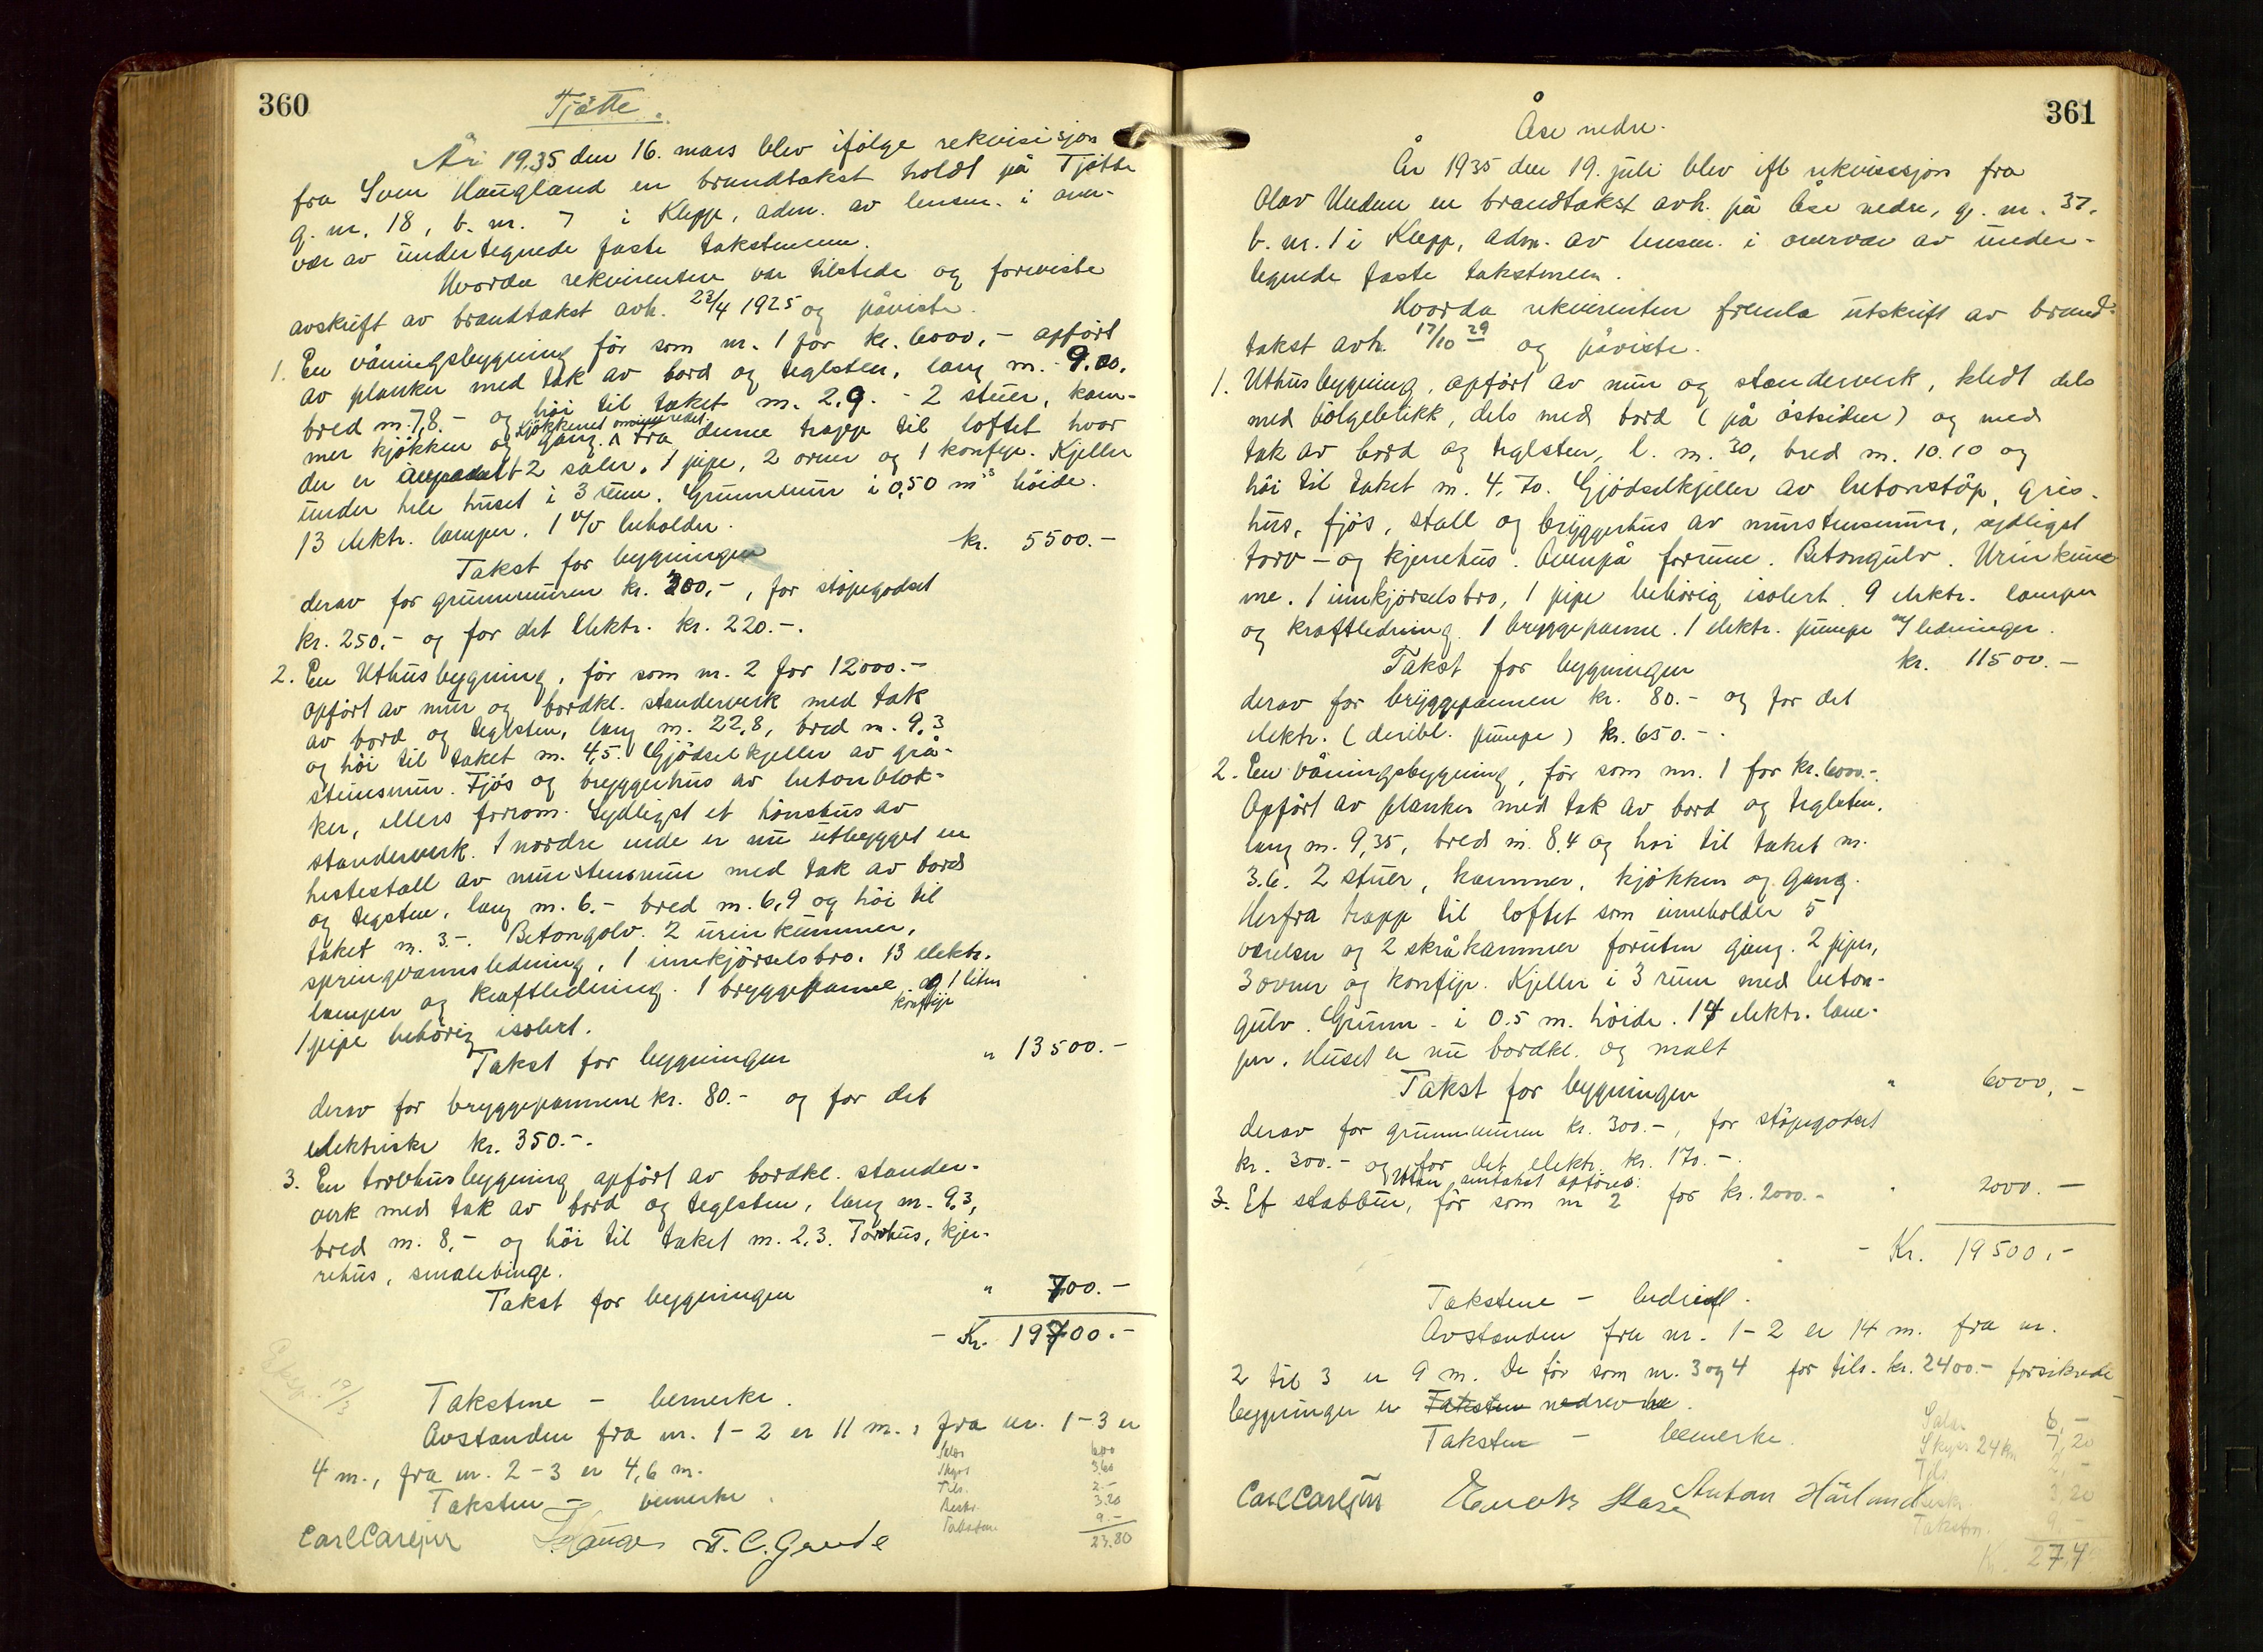 360
Tjøtte.
År 1935 den 16. mars blev ifølge rekvisisjon
fra Sven Haugland en brandtakst holdt på Tjøtte
g. nr. 18, b. nr. 7 i Klepp, adm. av lensm. i over-
vær av undertegnede faste takstmenn.
Hvorda rekvirenten var tilstede og foreviste
avskrift av brandtakst avh. 23/4 1925 og påviste.
1. En våningsbygning før som nr. 1 for kr. 6000,- opført
av planker med tak av bord og teglsten, lang m. 9.00,
bred m. 7,8.- og høi til taket m. 2,9. - 2 stuer, kam-
mer kjøkken og gang. Kjøkkenet ominnredet. Fra denne trapp til loftet hvor
der er 2 saler. 1 pipe, 2 ovner og 1 komfyr. Kjeller
under hele huset i 3 rum. Grunnmur i 0,50 m's høide.
13 elektr. lamper. 1 v/v beholder.
Takst for bygningen kr. 5500.-
derav for grunnmuren kr. 300,-, for støpegodset
kr. 250.- og for det elektr. kr. 220.-.
2. En Uthusbygning, før som nr. 2 for 12000.-
opført av mur og bordkl. standerverk med tak
av bord og teglsten, lang m. 22,8, bred m. 9,3
og høi til taket m. 4,5. Gjødselkjeller av grå-
stensmur. Fjøs og bryggerhus av betonblok-
ker, ellers forrom. Sydligst et hønsehus av
standerverk. I nordre ende er nu utbygget en
hestestall av murstensmur med tak av bord
og tegsten, lang m. 6.- bred m. 6,9 og høi til
taket m. 3.-. Betongolv. 2 urinkummer,
springvannsledning, 1 innkjørselsbro. 13 elektr.
lamper og kraftledning. 1 bryggepanne og 1 liten
komfyr
1 pipe behørig isolert.
Takst for bygningen " 13500.-
derav for bryggepannene kr. 80.- og for det
elektriske kr. 350.-.
3. En torvhusbygning opført av bordkl. stander-
verk med tak av bord og teglsten, lang m. 9,3,
bred m. 8,- og høi til taket m. 2,3. Torvhus, kjer-
rehus, smalebinge.
Takst for bygningen " 700.-
- Kr. 19700.-
Eksp. 19/3
Takstene - bemerke.
Avstanden fra nr. 1-2 er 11 m., fra nr. 1-3 er
4 m., fra nr. 2-3 er 4,6 m.
Taksten - bemerke.
Salær 6.00
Skyss 3.60
Tils. 2.-
Beskr. 3.20
Takstm. 9.-
23.80
Carl Carlsen T. C. Grude
361
Åse nedre.
År 1935 den 19. juli blev ifl rekvisisjon fra
Olav Undem en brandtakst avh. på Åse nedre, g. nr. 37,
b. nr. 1 i Klepp, adm. av lensm. i overvær av under-
tegnede faste takstmenn.
Hvorda rekvirenten fremla utskrift av brand-
takst avh. 17/10 29 og påviste.
1. Uthusbygning, opført av mur og standerverk, kledt dels
med bølgeblikk, dels med bord (på østsiden) og med
tak av bord og teglsten, l. m. 30, bred m. 10.10 og
høi til taket m. 4,70. Gjødselkjeller av betonstøp, gris-
hus, fjøs, stall og bryggerhus av murstensmur, sydligst
torv- og kjerrehus. Ovenpå forrum. Betongulv. Urinkum-
me. 1 innkjørselsbro, 1 pipe behørig isolert. 9 elektr. lamper
og kraftledning. 1 bryggepanne. 1 elektr. pumpe m/ ledninger.
Takst for bygningen kr. 11500.-
derav for bryggepannen kr. 80.- og for det
elektr. (deribl. pumpe) kr. 650.-.
2. En våningsbygning, før som nr. 1 for kr. 6000.-.
Opført av planker med tak av bord og teglsten,
lang m. 9,35, bred m. 8,4 og høi til taket m.
3.6. 2 stuer, kammer, kjøkken og gang.
Herfra trapp til loftet som inneholder 5
værelser og 2 skråkammer foruten gang. 2 piper,
3 ovner og komfyr. Kjeller i 3 rum med beton-
gulv. Grunnm. i 0.5 m. høide. 14 elektr. lam-
per. Huset er nu bordkl. og malt
Takst for bygningen " 6000,-
derav for grunnmuren kr. 300.-, for støpegodset
kr. 300.- og for det elektr. kr. 170.-.
Uten omtakst opføres:
3. Et stabbur, før som nr 2 for kr. 2000.- " 2000.-
- Kr. 19500,-
Takstene - bedrifl.
Avstanden fra nr. 1-2 er 14 m. fra nr.
2 til 3 er 9 m. De før som nr. 3 og 4 for tils. kr. 2400.- forsikrede
bygninger er Taksten nedrevne.
Taksten - bemerke.
Salær 6,-
Skyss 24 km 7,20
Tils. 2,-
Beskr. 3,20
Takstm. 9.-
Kr. 27,4
Carl Carlsen Enok Hase Anton Hårland